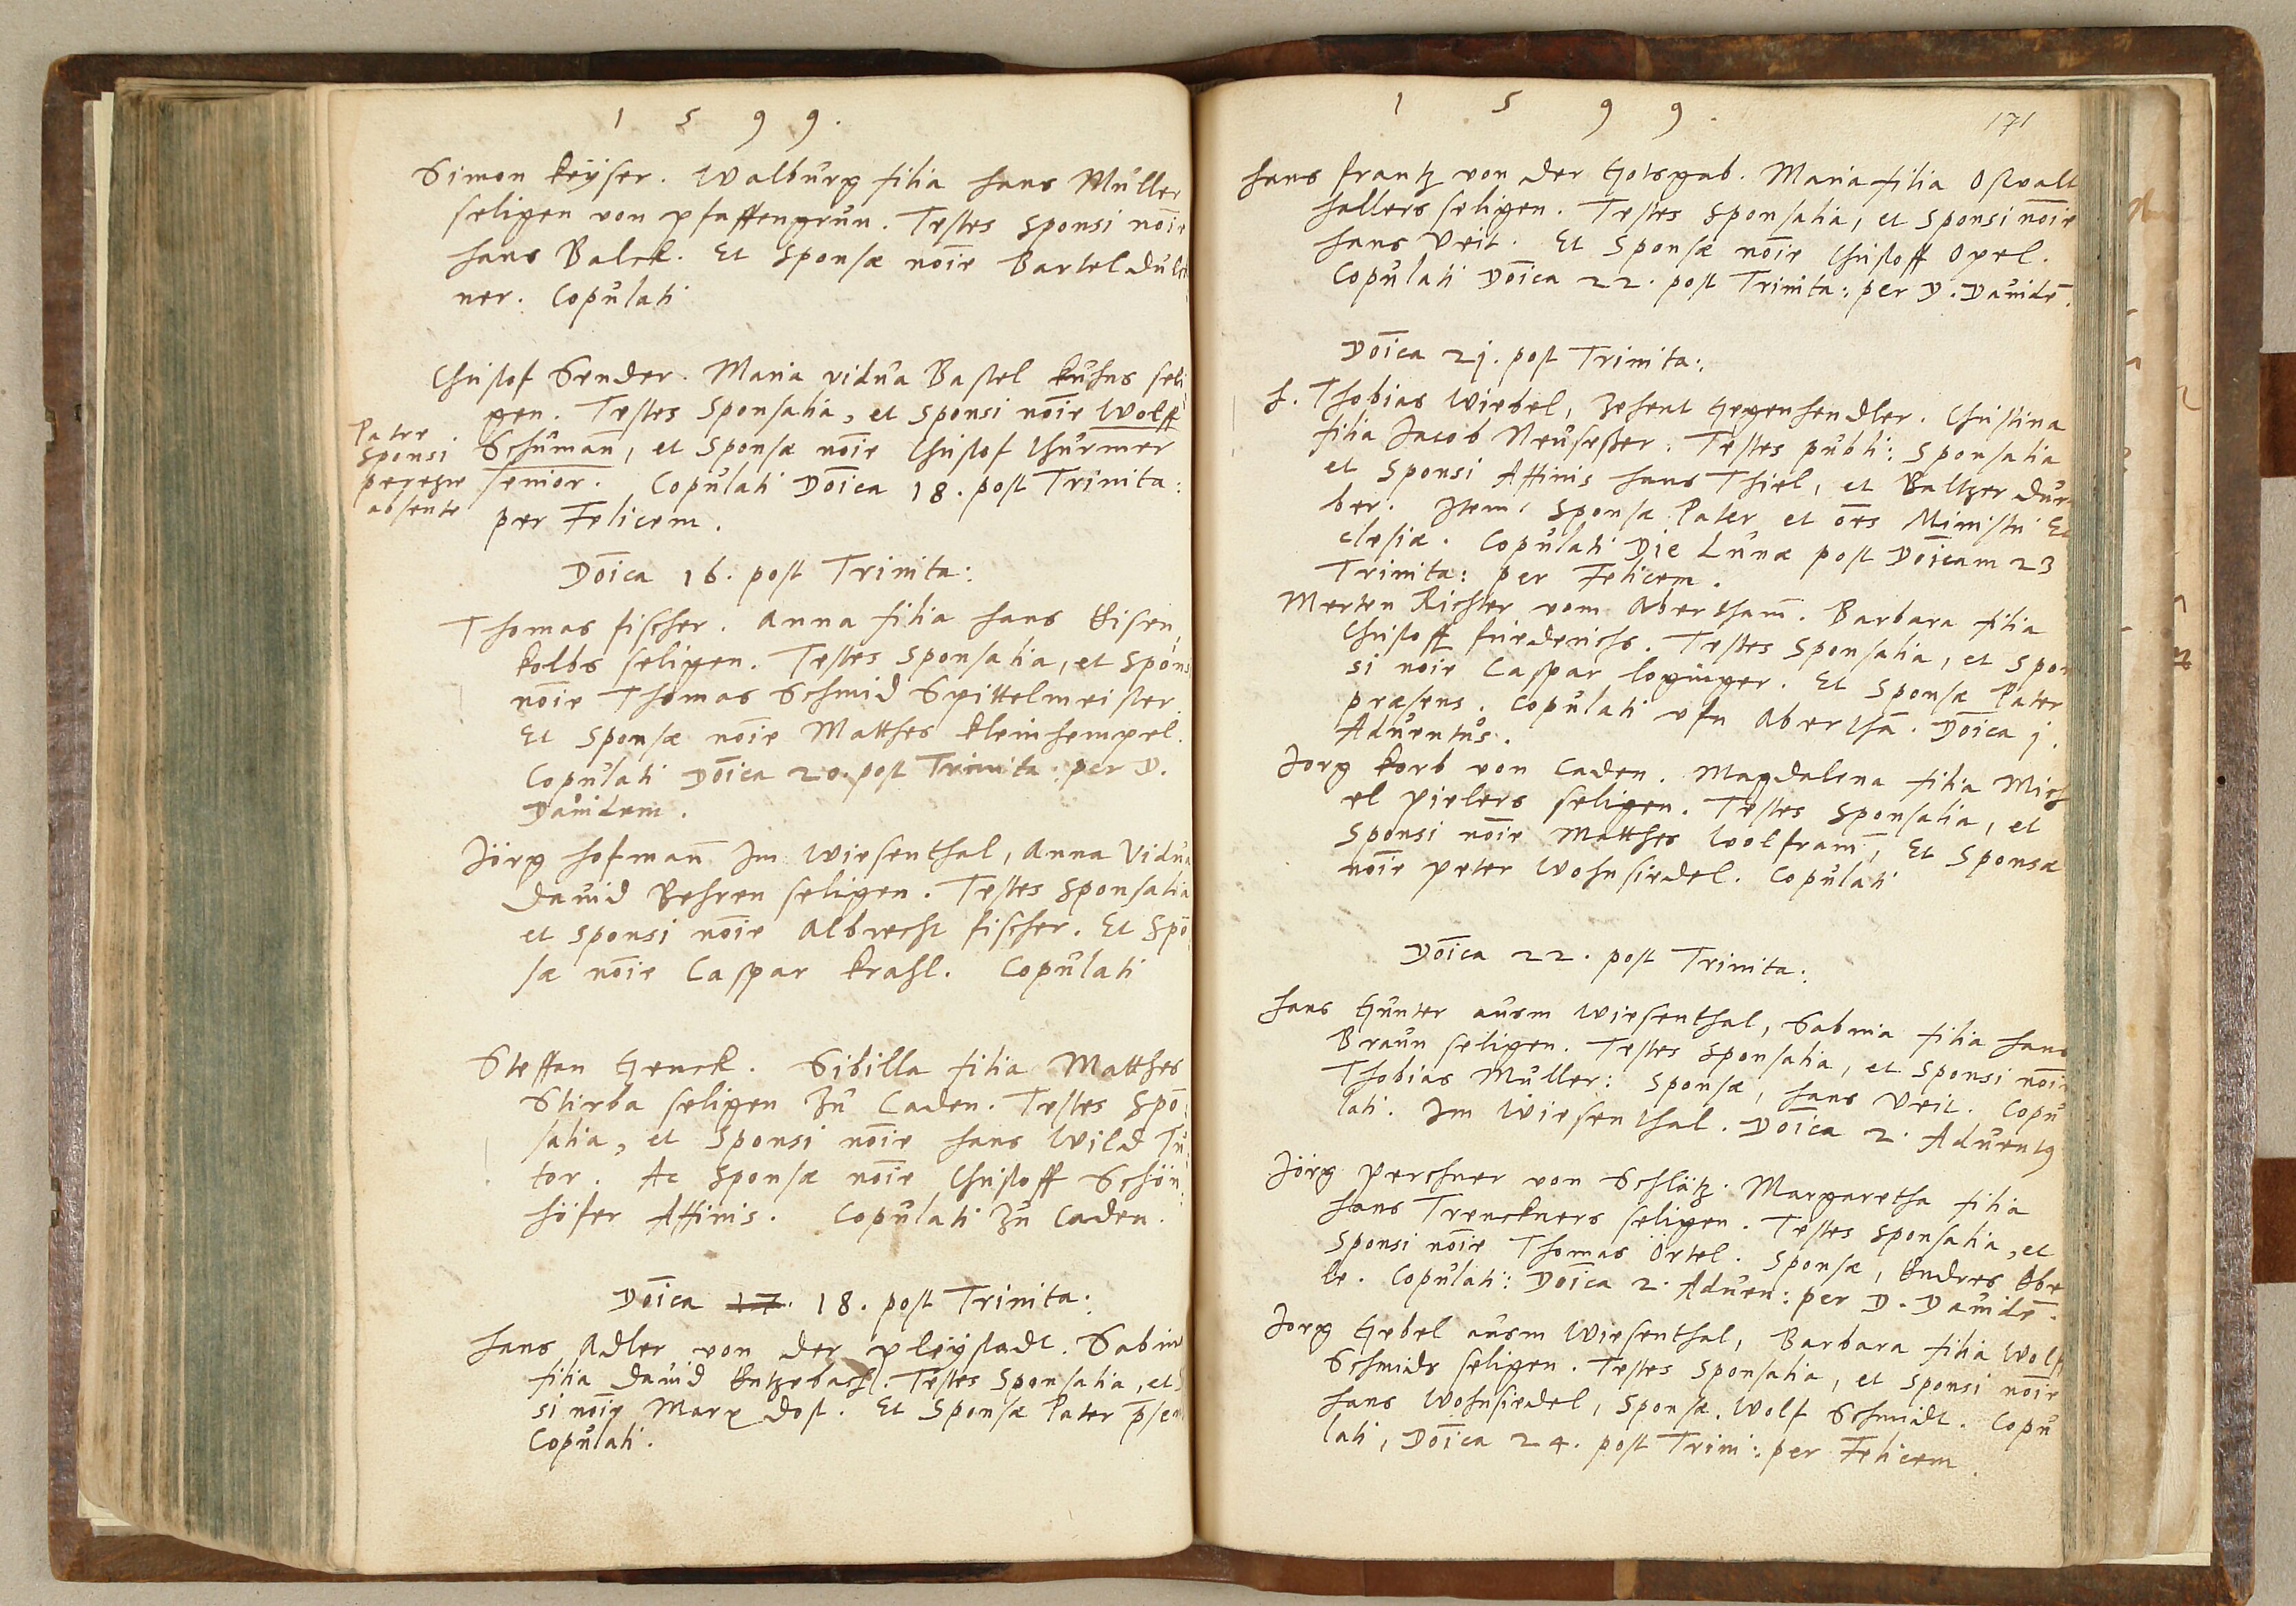 1 5 9 9.
Simon keyser. Walburg filia Hans Müller
seligen von Pfaffengrün. Testes Sponsi noīe
Hans Balck. Et Sponsæ noīe Bartel
ner. Copulati
Christof Sender. Maria vidua Bastel Kuhns seli
gen. Testes Sponsalia, et Sponsi noīe Wolff
Schūman̄, et Sponsæ noīe Christof Thürmer
senior. Copulati Doīca 18. post Trinita:
per Felicem.
Patre
Sponsi
peregre
absente
Doīca 16. post Trinita:
Thomas Fischer. Anna filia Hans Eisen,
kolbs seligen. Testes Sponsalia, et Spons
noīe Thomas Schmid Spittelmeister.
Et Sponsæ noīe Matthes Kleinhempel.
Copulati Doīca 20. post Trinita: per D.
Dauidem.
Jörg Hofman̄ Im Wiesenthal, Anna Vidua
Dauid Behren seligen. Testes Sponsalia
et Sponsi noīe Albrecht Fischer. Et Spō
sæ noīe Caspar Krahl. Copulati
Steffan Genck. Sibilla filia Matthes
Stirba seligen Zu Caden. Testes Spō
salia, et Sponsi noīe Hans Wild Tu
tor. Ac Sponsæ noīe Christoff Schön
höfer Affinis. Copulati Zu Caden.
Doīca 17. 18. post Trinita:
Hans Adler von der Pleystadt. Sabin
filia Dauid Entzebach. Testes Sponsalia, et
si noīe Marx Dost. Et Sponsæ Pater p̄sen
Copulati.
1 5 9 9.
171
Hans Frantz von der Gotsgab. Maria filia Oswalt
Hallers seligen. Testes Sponsalia, et Sponsi noīe
Hans Veit. Et Sponsæ noīe Christoff Opel.
Copulati Doīca 22. post Trinita: per D. Dauidē.
Doīca 21. post Trinita:
H. Thobias Wiebel, Zehent Gegenhendler. Christina
filia Jacob Neüseßer. Testes publi: Sponsalia
et Sponsi Affinis Hans Thiel, et Baltzer Dür
ber. Item Sponsæ Pater et oēs Ministri Ec
clesiæ. Copulati Die Lunæ post Doīcam 23
Trinita: per Felicem.
Merten Richter vom Aberthām. Barbara filia
Christoff Friederichs. Testes Sponsalia, et Spon
si noīe Caspar Loginger. Et Sponsæ Pater
præsens. Copulati vfn Aberthā. Doīca j.
Aduentus.
Jorg Korb von Caden. Magdalena filia Mich
el Pielers seligen. Testes Sponsalia, et
Sponsi noīe Matthes Wolfram̄, Et Sponsæ
noīe Peter Wohnsiedel. Copulati
Doīca 22. post Trinita:
Hans Günter ausm Wiesenthal, Sabina filia Hans
Braun seligen. Testes Sponsalia, et Sponsi noīe
Thobias Müller: Sponsæ, Hans Veit. Copu
lati. Im Wiesenthal. Doīca 2. Aduent9
Jörg Perchner von Schlätz. Margaretha filia
Hans Trenckners seligen. Testes Sponsalia, et
Sponsi noīe Thomas Örtel. Sponsæ, Endres Ebe
le. Copulati: Doīca 2. Aduen: per D. Dauidē.
Jorg Gebel ausm Wiesenthal, Barbara filia Wolf
Schmids seligen. Testes Sponsalia, et Sponsi noīe
Hans Wohnsiedel, Sponsæ, Wolf Schmidt. Copu
lati, Doīca 24. post Trini: per Felicem.